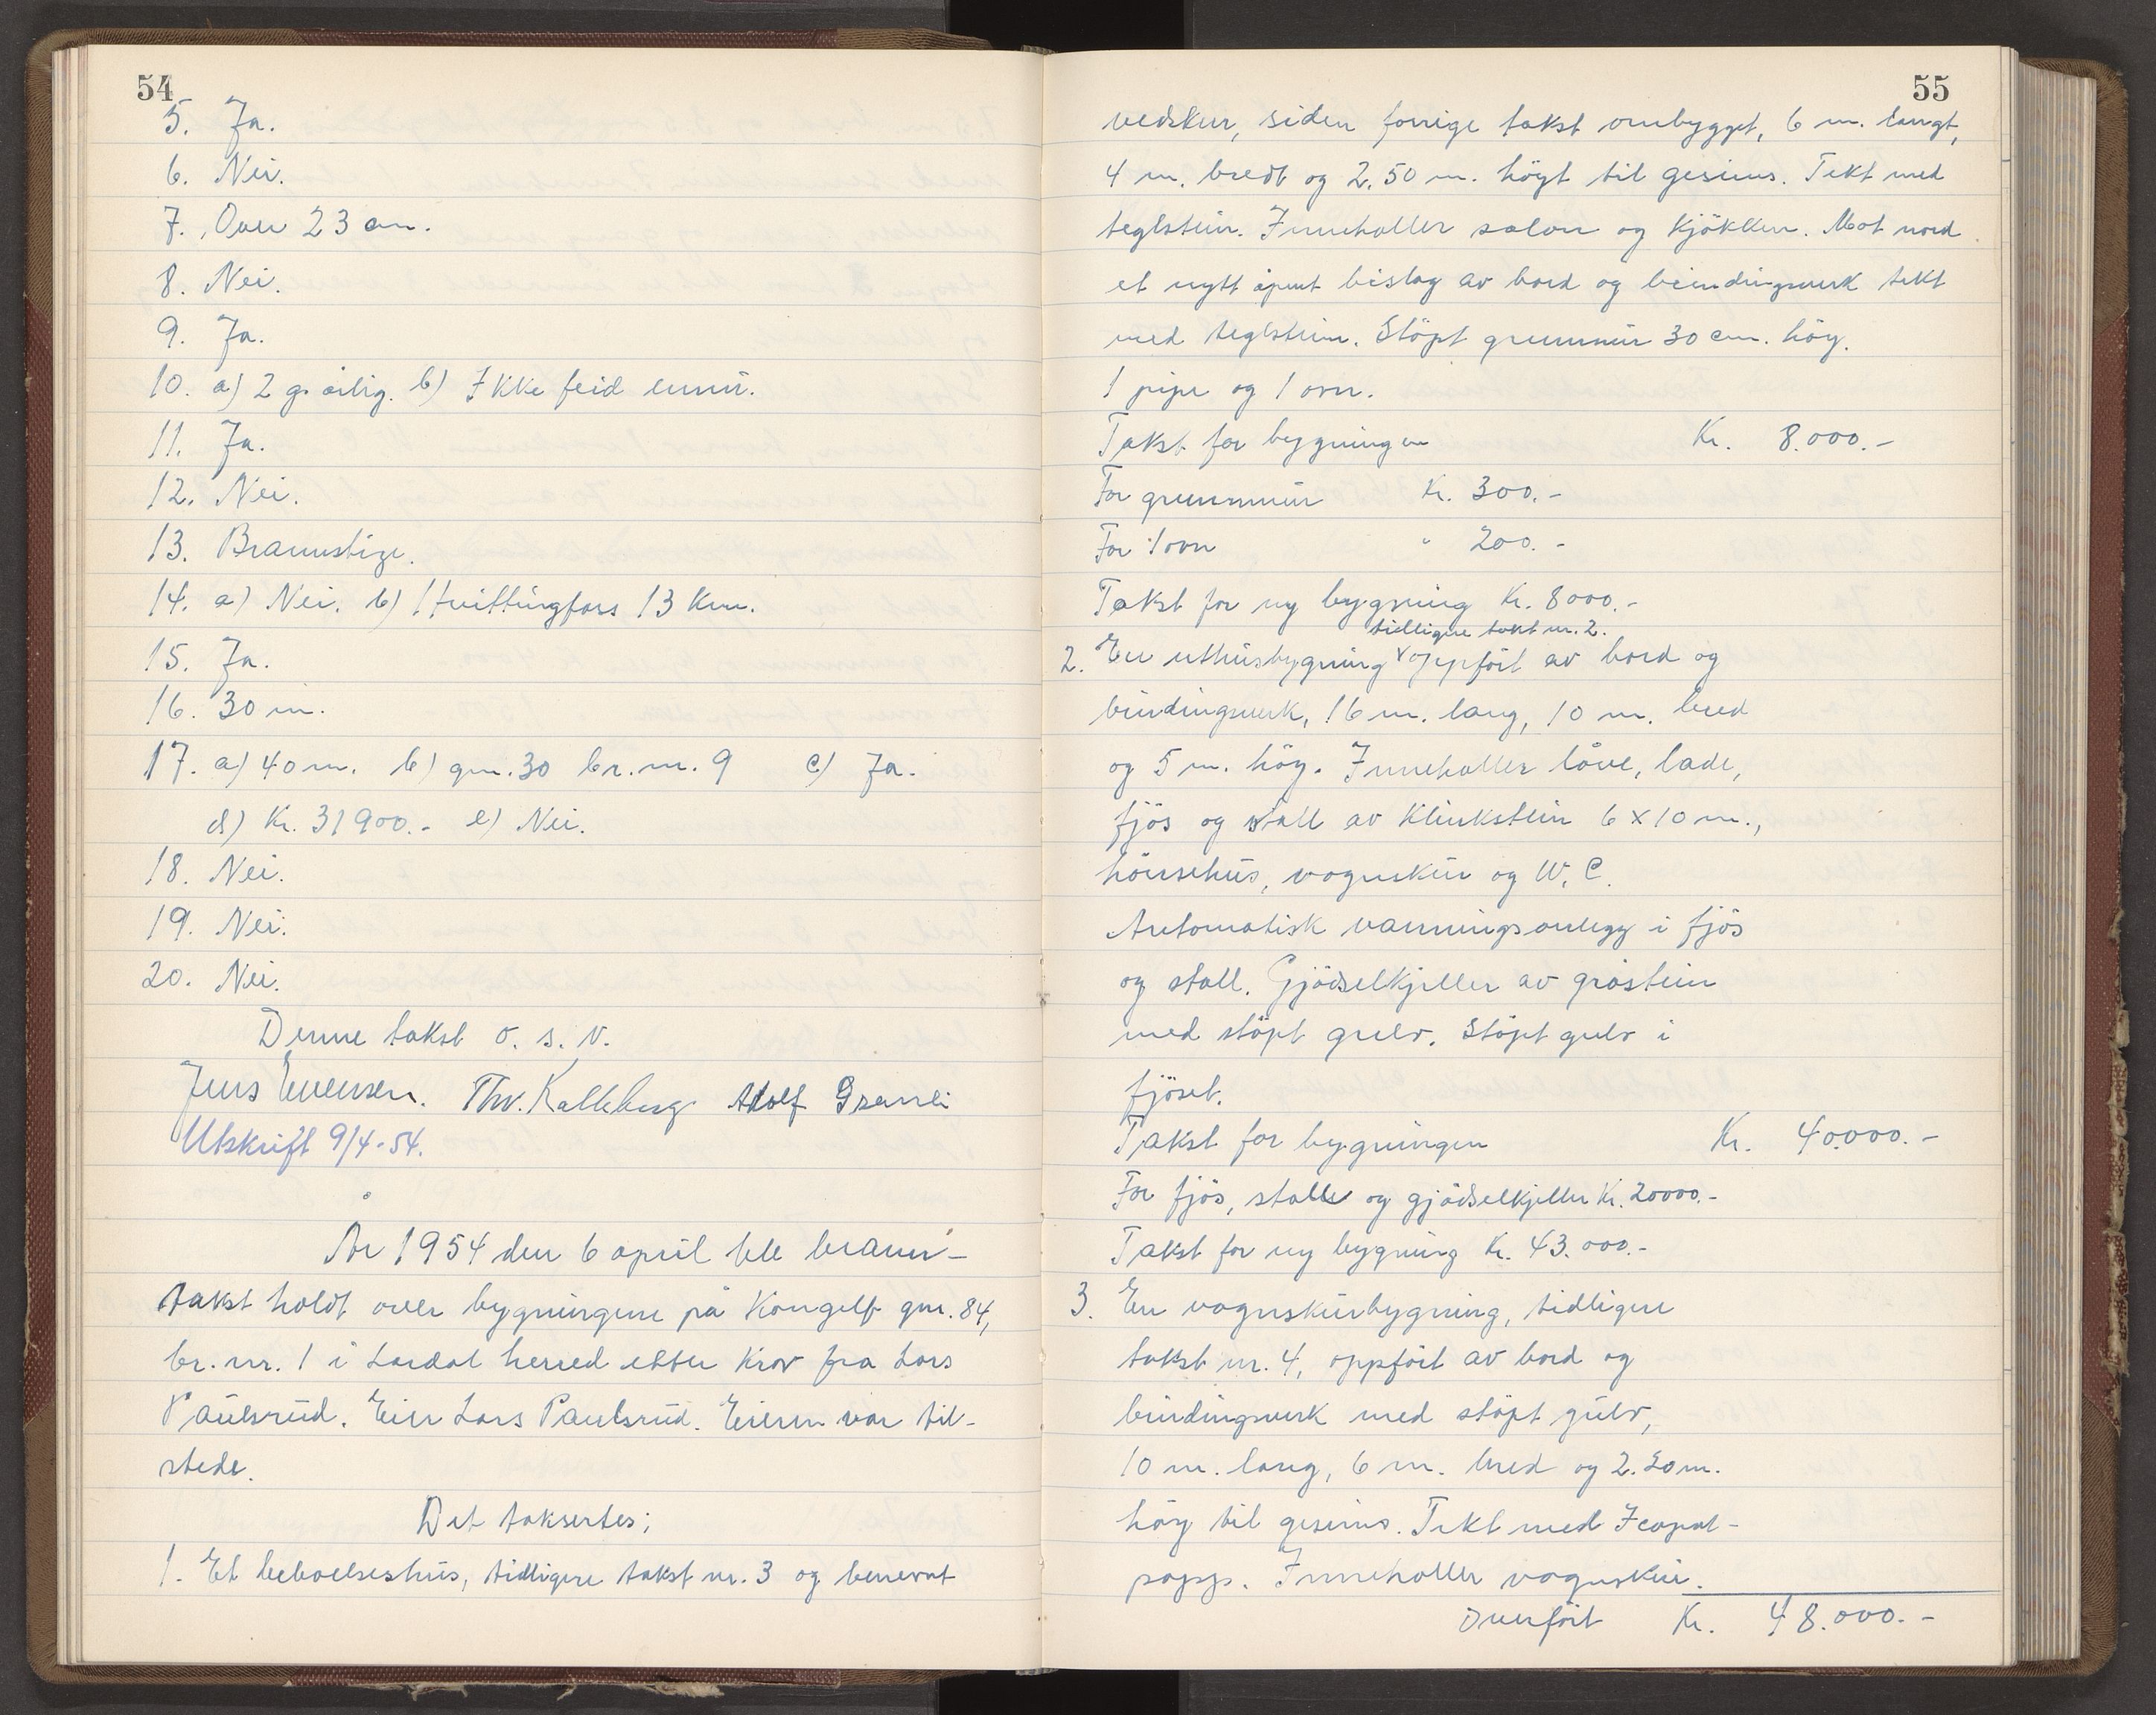 54
5. Ja.
6. Nei.
7. Over 23 cm.
8. Nei.
9. Ja.
10. a) 2 g. årlig. b) Ikke feid ennu.
11. Ja.
12. Nei.
13. Brannstige.
14. a) Nei. b) Hvittingfoss 13 km.
15. Ja.
16. 30 m.
17. a) 40 m. b) gnr. 30 br. nr. 9 c) Ja.
d) Kr. 31900.- e) Nei.
18. Nei.
19. Nei.
20. Nei.
Denne takst o. s. v.
Jens Evensen. Thv. Kalleberg Adolf Granli
Utskrift 9/4-54.
År 1954 den 6 april ble brann-
takst holdt over bygningene på Kongelf gnr. 84,
br. nr. 1 i Lardal herred etter krav fra Lars
Paulsrud. Eier Lars Paulsrud. Eieren var til-
stede.
Det taksertes;
1. Et beboelseshus, tidligere takst nr. 3 og benevnt
55
vedskur, siden forrige takst ombygget, 6 m. langt,
4 m. bredt og 2.50 m. höyt til gesims. Tekt med
teglstein. Inneholler salon og kjökken. Mot nord
et nytt åpent bislag av bord og beindingsverk tekt
med teglstein. Stöpt grunnmur 30 cm. höy.
1 pipe og 1 ovn.
Takst for bygningen Kr. 8.000.-
For grunnmur Kr. 300.-
For 1 ovn " 200.-
Takst for ny bygning Kr. 8000.-
tidligere takst nr. 2.
2. En uthusbygning v oppfört av bord og
bindingsverk, 16 m. lang, 10 m. bred
og 5 m. höy. Inneholler låve, lade,
fjös og stall av klinkstein 6 x 10 m.,
hönsehus, vognskur og W.C.
Automatisk vanningsanlegg i fjös
og stall. Gjödselkjeller av gråstein
med stöpt gulv. Stöpt gulv i
fjöset.
Takst for bygningen Kr. 40.000.-
For fjös, stall og gjödselkjeller Kr. 20000.-
Takst for ny bygning Kr. 43.000.-
3. En vognskurbygning, tidligere
takst nr. 4, oppfört av bord og
bindingsverk med stöpt gulv,
10 m. lang, 6 m. bred og 2.20 m.
höy til gesims. Tekt med Icopal-
papp. Inneholler vognskur.
Overfört Kr. 48.000.-